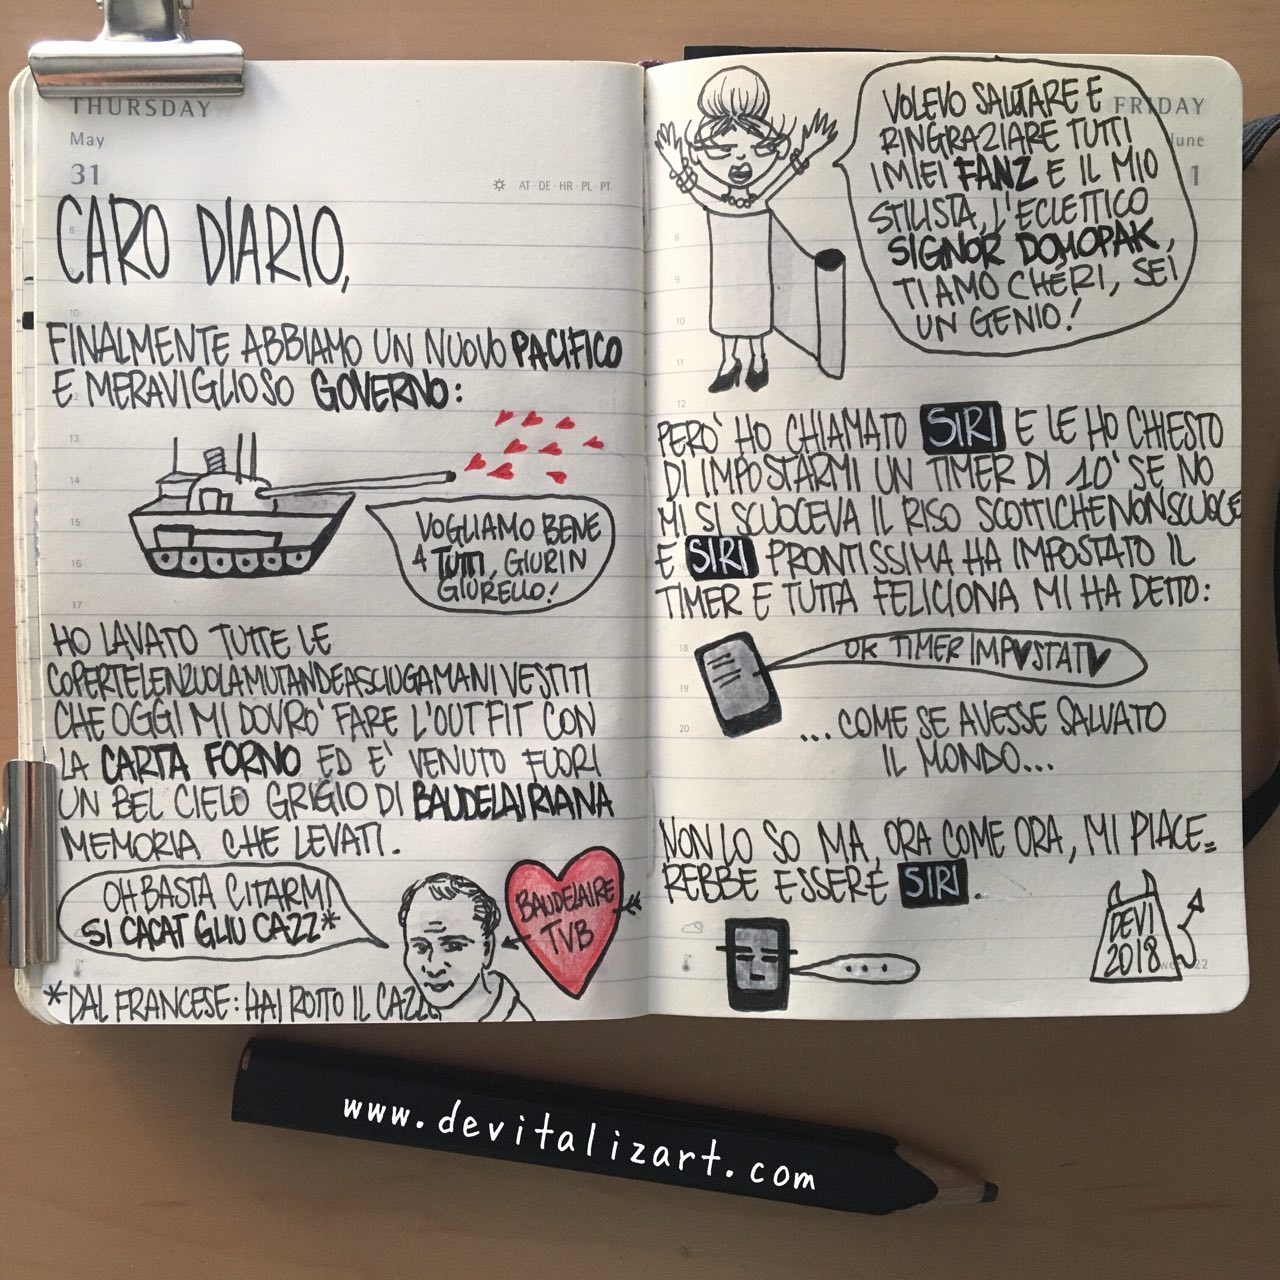 THURSDAY
May
31
AT · DE · HR · PL · PT
CARO DIARIO,
FINALMENTE ABBIAMO UN NUOVO PACIFICO
E MERAVIGLIOSO GOVERNO:
VOGLIAMO BENE
A TUTTI, GIURIN
GIURELLO!
HO LAVATO TUTTE LE
COPERTELENZUOLAMUTANDEASCIUGAMANIVESTITI
CHE OGGI MI DOVRO' FARE L'OUTFIT CON
LA CARTA FORNO ED E' VENUTO FUORI
UN BEL CIELO GRIGIO DI BAUDELAIRIANA
MEMORIA CHE LEVATI.
OH BASTA CITARMI
SI CACAT GLIU CAZZ*
BAUDELAIRE
TVB
*DAL FRANCESE: HAI ROTTO IL CAZZ
FRIDAY
June
1
VOLEVO SALUTARE E
RINGRAZIARE TUTTI
I MIEI FANZ E IL MIO
STILISTA, L'ECLETTICO
SIGNOR DOMOPAK,
TI AMO CHERI, SEI
UN GENIO!
PERO' HO CHIAMATO SIRI E LE HO CHIESTO
DI IMPOSTARMI UN TIMER DI 10' SE NO
MI SI SCUOCEVA IL RISO SCOTTICHENONSCUOCE
E SIRI PRONTISSIMA HA IMPOSTATO IL
TIMER E TUTTA FELICIONA MI HA DETTO:
OK TIMER IMPVSTATV
...COME SE AVESSE SALVATO
IL MONDO...
NON LO SO MA, ORA COME ORA, MI PIACE=
REBBE ESSERE SIRI.
...
DEVI
2018
22
www.devitalizart.com